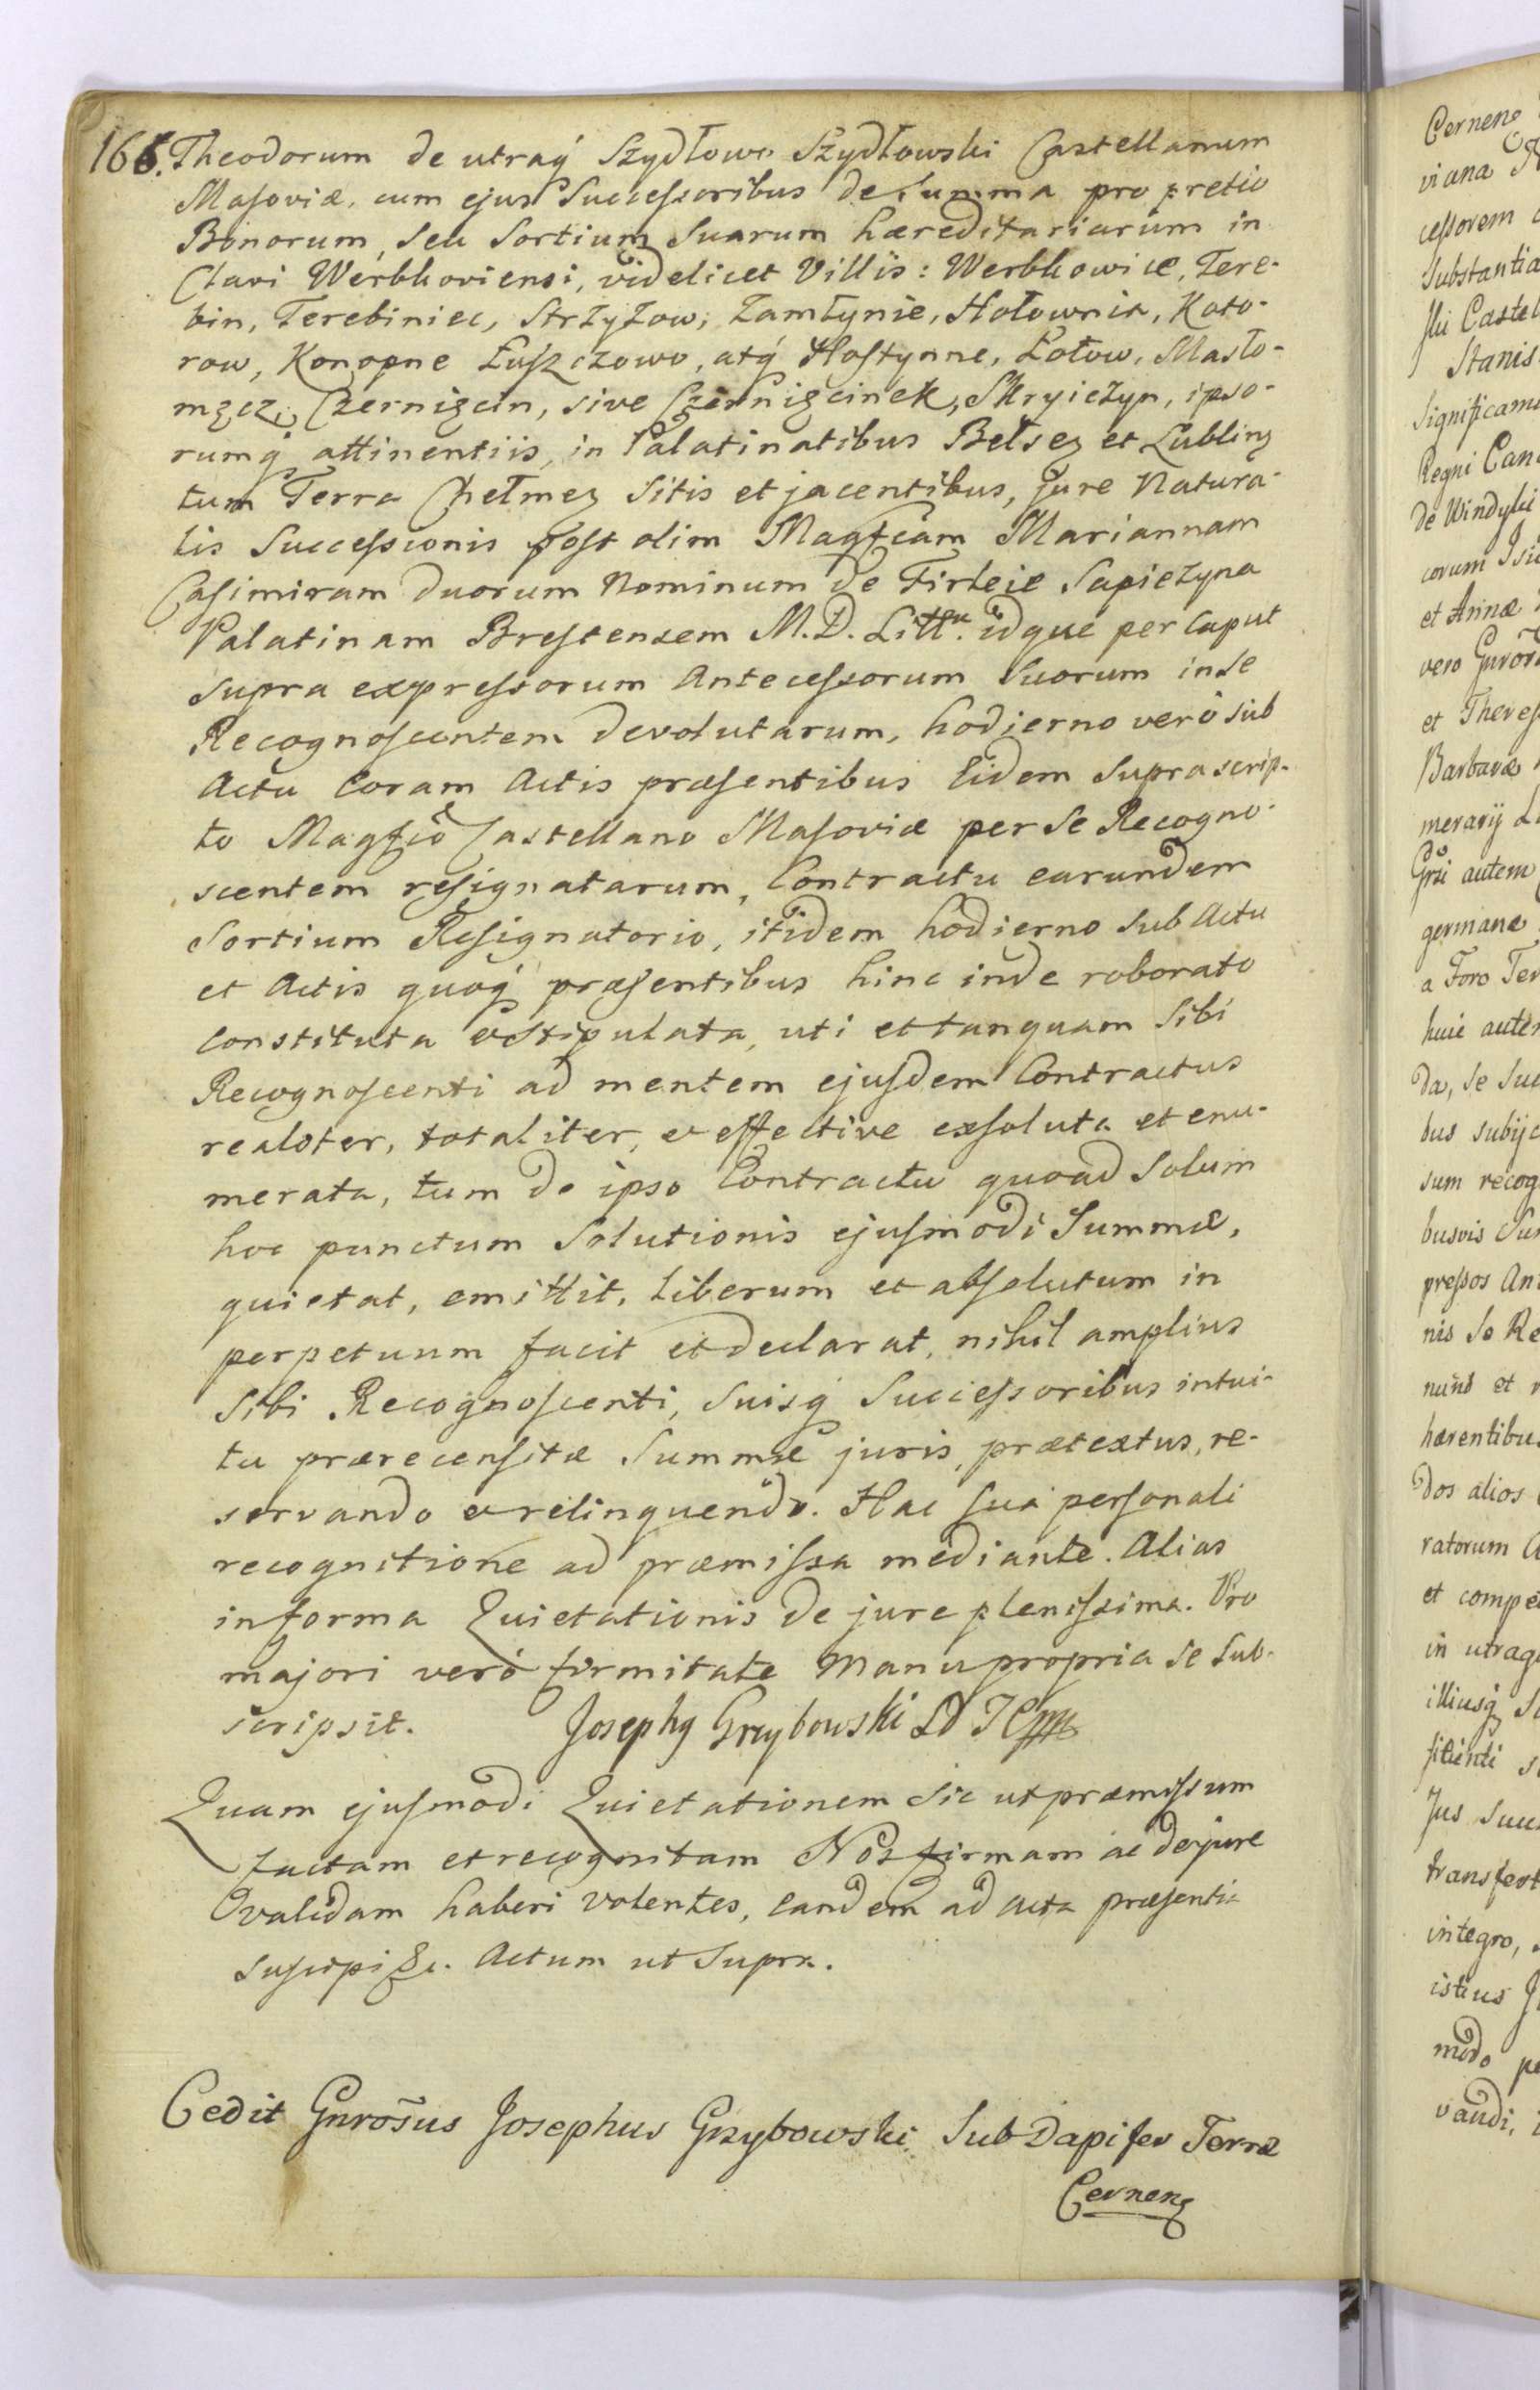 166. Theodorum de utraq́ Szydłowo Szydłowski Castellanum
Masoviæ, cum ejus Successoribus de Summa pro pretio
Bonorum, seu Sortium Suarum hæreditariarum in
Clavi Werbkoviensi, videlicet Villis: Werbkowice, Tere-
bin, Terebiniec, Strzyżow, Zamłynie, Hołownia, Koto-
row, Konopne Łuszczowo, atq́ Hostynne, Łotow, Masło-
męcz, Czernięcin, sive Czernięcinek, Skryiczyn, ipso-
rumq́ attinentiis, in Palatinatibus Belsen et Lublinen
tum Terra Chełmen Sitis et jacentibus, jure Natura-
lis Successionis post olim Magfcam Mariannam
Casimiram duorum Nominum de Firleie Sapieżyna
Palatinam Brestensem M. D. Litt. idque per Caput
supra expressorum Antecessorum Suorum in se
Recognoscentem devolutarum, hodierno veró sub
Actu Coram Actis præsentibus Eidem suprascrip-
to Magfco Castellano Masoviæ per se Recogno-
scentem resignatarum, Contractu earundem
Sortium Resignatorio, itidem hodierno sub Actu
et Actis quoq́ præsentibus hinc inde roborato
constituta & stipulata, uti et tanquam Sibi
Recognoscenti ad mentem ejusdem Contractus
realiter, totaliter, & effective exsoluta et enu-
merata, tum de ipso Contractu quoad Solum
hoc punctum Solutionis ejusmodi Summæ,
quietat, emittit, liberum et absolutum in
perpetuum facit et declarat, nihil amplius
Sibi Recognoscenti, Suisq́ Successoribus intui-
tu prærecensitæ Summæ juris, prætextus, re-
servando & relinquendo. Hac suâ personali
recognitione ad præmissa mediante. Alias
in forma Quietationis de jure plenissima. Pro
majori veró firmitate Manu propria se sub-
scripsit. Josephq Grzybowski
Quam ejusmodi Quietationem Sic ut præmissum
factam et recognitam Nos firmam ac de jure
validam haberi volentes, eandem ad acta præsentia
suscepi &c. Actum ut Supra.
Cedit Gnrōsus Josephus Grzybowski SubDapifer Terræ
Cernen

Cernen
viana
cessorem
substantia
ski Castel
Stanis
significam
Regni Can
de Windyki
corum
et Annæ
vero Gnrōs
et Theres
Barbaræ
merarij
Grsi autem
germanæ
a Foro Ter
huic autem
da, se suc
bus subijc
sum recog
busvis Su
pressos Ant
nis se Re
et
hærentibus
dos alios
ratorum A
et compe
in utraq
illiusq́ S
Jus succ
transfert
integro,
istius
modo pe
vandi,